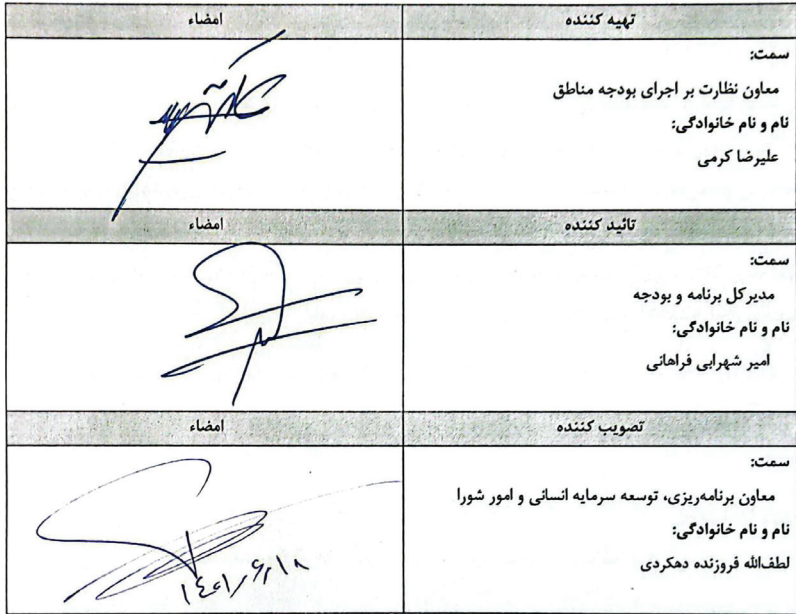 تهیه کننده
امضاء
سمت:
معاون نظارت بر اجرای بودجه مناطق
نام و نام خانوادگی:
علیرضا کرمی
تائید کننده
امضاء
سمت:
مدیرکل برنامه و بودجه
نام و نام خانوادگی:
امیر شهرابی فراهانی
تصویب کننده
امضاء
سمت:
معاون برنامه‌ریزی، توسعه سرمایه انسانی و امور شورا
نام و نام خانوادگی:
لطف‌الله فروزنده دهکردی
۱۴۰۱/۶/۱۸